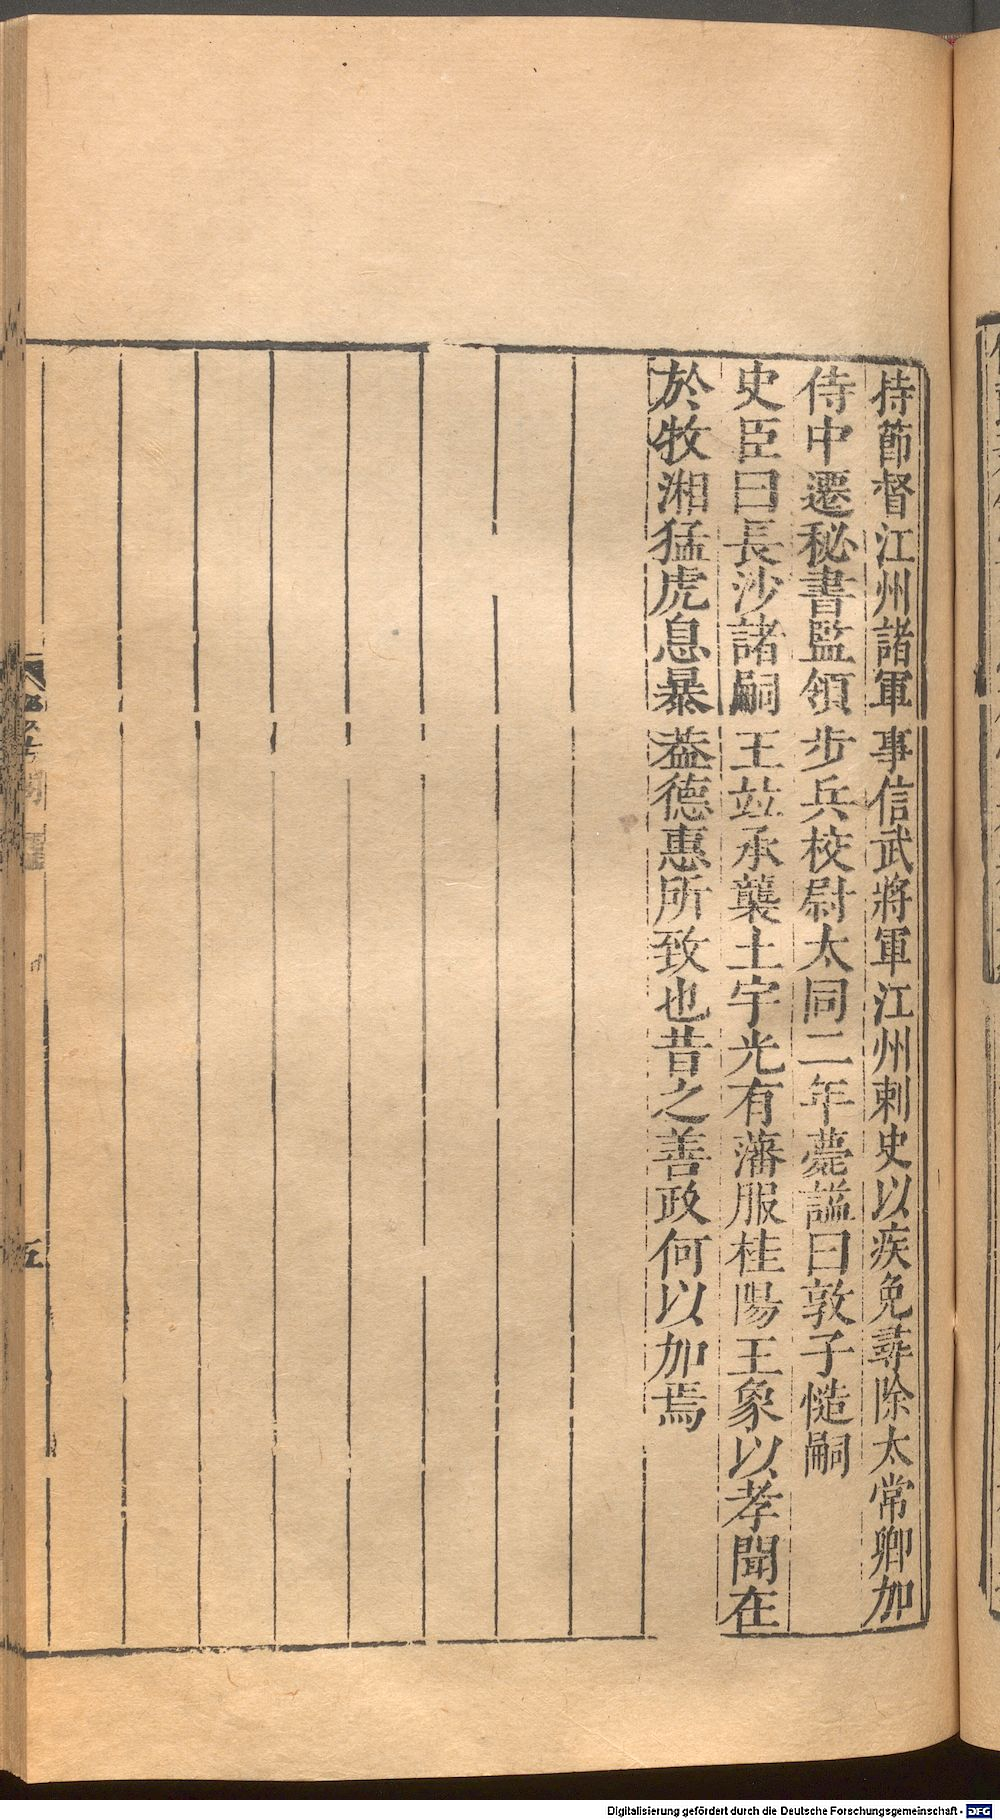 持節督江州諸軍事信武將軍江州刺史以疾免尋除太常卿加
侍中遷秘書監領步兵校尉太同二年薨諡曰敦子慥嗣
史臣曰長沙諸嗣王竝承襲土宇光有藩服桂陽王象以孝聞在
於牧湘猛虎息暴葢德惠所致也昔之善政何以加焉
五
Digitalisierung gefördert durch die Deutsche Forschungsgemeinschaft - DFG